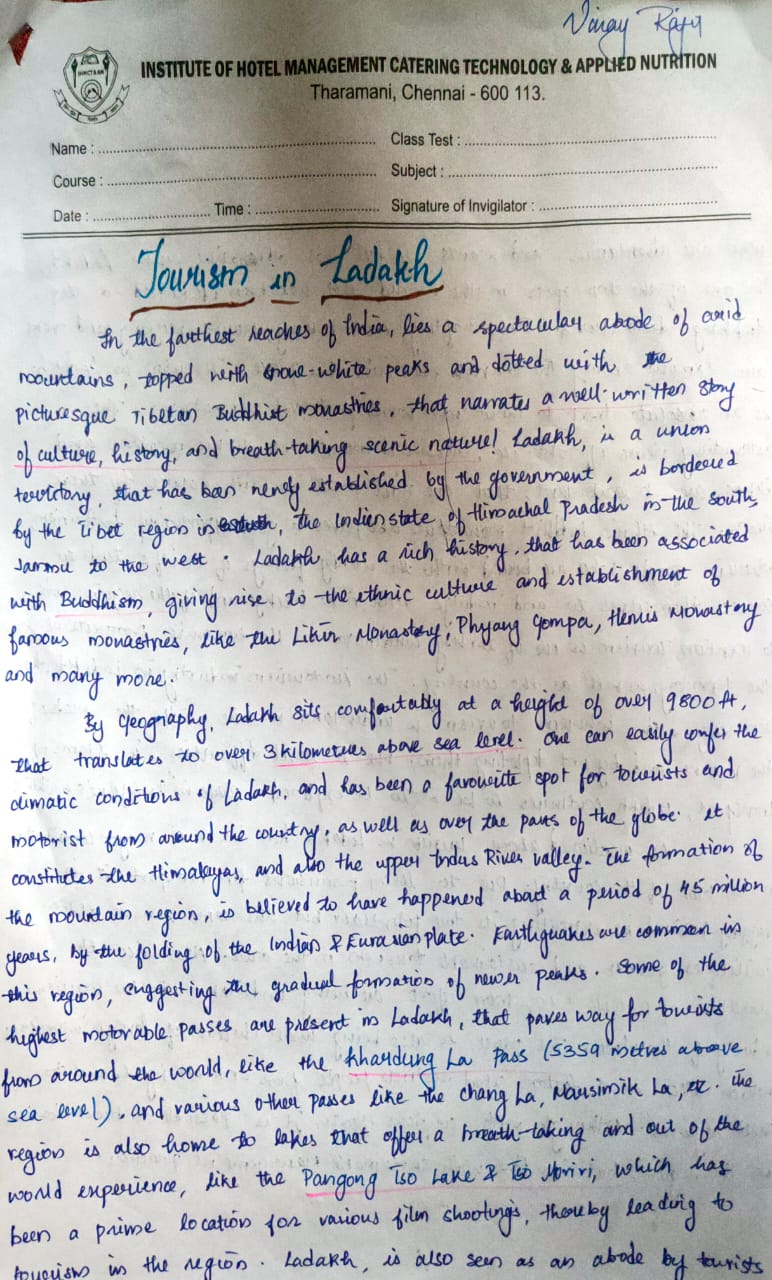 Vinay Raju
IHMCT & AN
INSTITUTE OF HOTEL MANAGEMENT CATERING TECHNOLOGY & APPLIED NUTRITION
Tharamani, Chennai - 600 113.
Name : Class Test :
Course : Subject :
Date : Time : Signature of Invigilator :
Tourism in Ladakh
In the farthest reaches of India, lies a spectacular abode of arid
mountains, topped with snow-white peaks and dotted with the
picturesque Tibetan Buddhist monastries, that narrates a well-written story
of culture, history, and breath-taking scenic nature! Ladakh, is a union
territory, that has been newly established by the government, is bordered
by the Tibet region in, the Indian state of Himachal Pradesh in the South,
Jammu to the west. Ladakh has a rich history, that has been associated
with Buddhism, giving rise to the ethnic culture and establishment of
famous monastries, like the Likir Monastery, Phyang Gompa, Hemis Monastery
and many more.
By Geography, Ladakh sits comfortably at a height of over 9800 ft,
that translates to over 3 kilometres above sea level. One can easily confer the
climatic conditions of Ladakh, and has been a favourite spot for tourists and
motorist from around the country, as well as over the parts of the globe. It
constitutes the Himalayas, and also the upper Indus River valley. The formation of
the mountain region, is believed to have happened about a period of 45 million
years, by the folding of the Indian & Eurasian plate. Earthquakes are common in
this region, suggesting the gradual formation of newer peaks. Some of the
highest motorable passes are present in Ladakh, that paves way for tourists
from around the world, like the Khardung La Pass (5359 metres above
sea level), and various other passes like the Chang La, Marsimik La, etc. The
region is also home to lakes that offer a breath-taking and out of the
world experience, like the Pangong Tso Lake & Tso Moriri, which has
been a prime location for various film shootings, thereby leading to
tourism in the region. Ladakh, is also seen as an abode by tourists